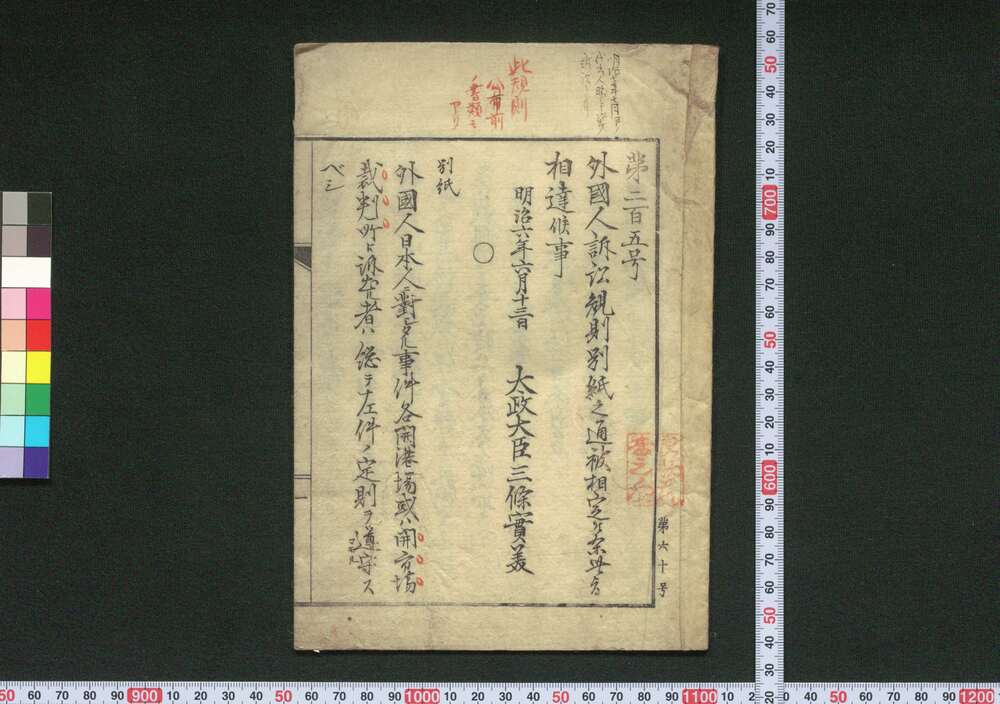 第二百五号
外國人訴訟規則別紙之通被相定候条此旨
相達候事
明治六年六月十三日
太政大臣三條實美
〇
別紙
外國人日本人ニ對スル事件各開港場或ハ開市場
裁判所ヘ訴出ル者ハ總テ左ノ件ノ定則ヲ遵守ス
ベシ
此規則
公布前
書類モ
アリ
第六十号
50 60 70 80 90 900 10 20 30 40 50 60 70 80 90 1000 10 20 30 40 50 60 70 80 90 1100 10 20 30 40 50 60 70 80 90 1200
70 60 50 40 30 20 10 700 90 80 70 60 50 40 30 20 10 600 90 80 70 60 50 40 30 20